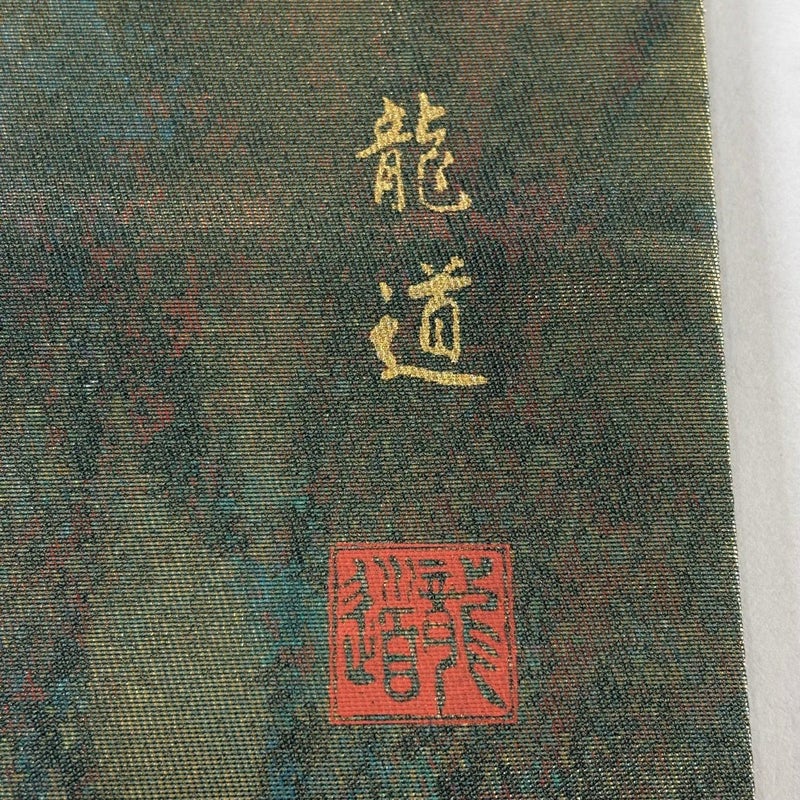 龍道
龍道